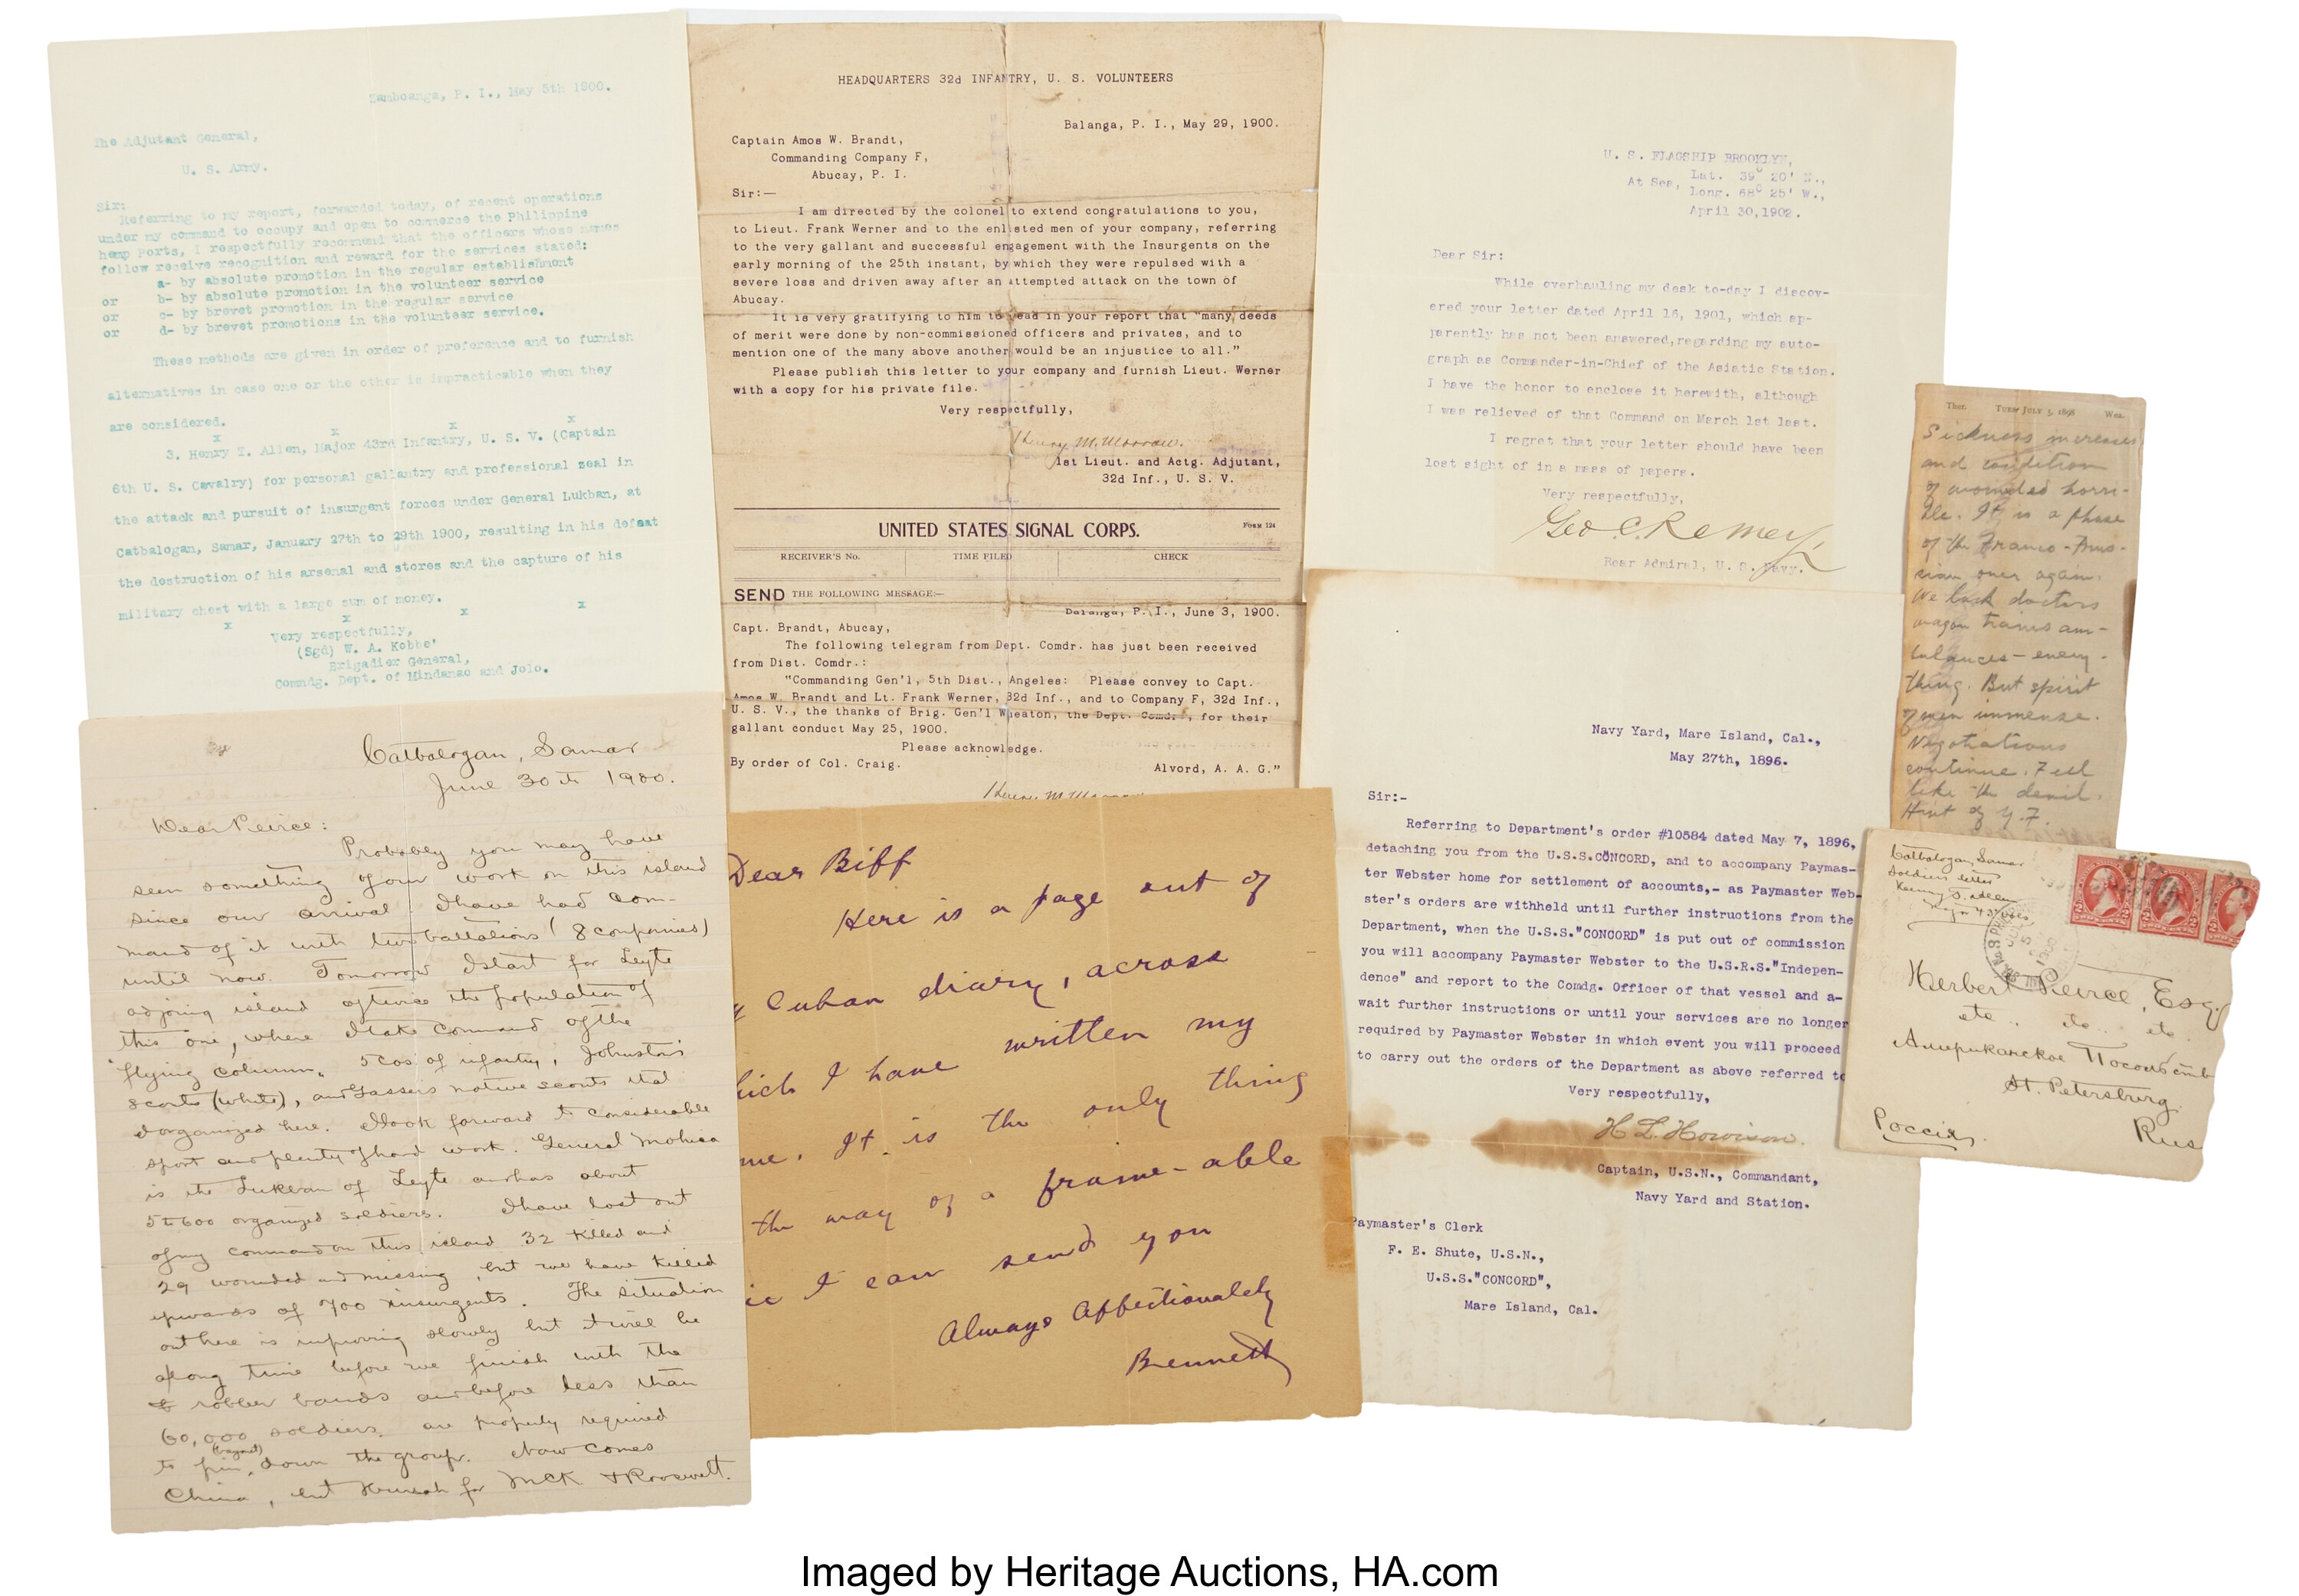 Zamboanga, P. I., May 5th 1900.
The Adjutant General,
U. S. Army.
Sir:
Referring to my report, forwarded today, of recent operations
under my command to occupy and open to commerce the Philippine
hemp Ports, I respectfully recommend that the officers whose names
follow receive recognition and reward for the services stated:
a- by absolute promotion in the regular establishment
or b- by absolute promotion in the volunteer service
or c- by brevet promotion in the regular service
or d- by brevet promotions in the volunteer service.
These methods are given in order of preference and to furnish
alternatives in case one or the other is impracticable when they
are considered.
x x x x
3. Henry T. Allen, Major 43rd Infantry, U. S. V. (Captain
6th U. S. Cavalry) for personal gallantry and professional zeal in
the attack and pursuit of insurgent forces under General Lukban, at
Catbalogan, Samar, January 27th to 29th 1900, resulting in his defeat
the destruction of his arsenal and stores and the capture of his
military chest with a large sum of money.
x x x x
Very respectfully,
(Sgd) W. A. Kobbe'
Brigadier General,
Comndg. Dept. of Mindanao and Jolo.
HEADQUARTERS 32d INFANTRY, U. S. VOLUNTEERS
Balanga, P. I., May 29, 1900.
Captain Amos W. Brandt,
Commanding Company F,
Abucay, P. I.
Sir:—
I am directed by the colonel to extend congratulations to you,
to Lieut. Frank Werner and to the enlisted men of your company, referring
to the very gallant and successful engagement with the Insurgents on the
early morning of the 25th instant, by which they were repulsed with a
severe loss and driven away after an attempted attack on the town of
Abucay.
It is very gratifying to him to read in your report that "many deeds
of merit were done by non-commissioned officers and privates, and to
mention one of the many above another would be an injustice to all."
Please publish this letter to your company and furnish Lieut. Werner
with a copy for his private file.
Very respectfully,
Henry M. Morrow.
1st Lieut. and Actg. Adjutant,
32d Inf., U. S. V.
UNITED STATES SIGNAL CORPS.
FORM 124
RECEIVER'S No. TIME FILED CHECK
SEND THE FOLLOWING MESSAGE:—
Balanga, P. I., June 3, 1900.
Capt. Brandt, Abucay,
The following telegram from Dept. Comdr. has just been received
from Dist. Comdr.:
"Commanding Gen'l, 5th Dist., Angeles: Please convey to Capt.
Amos W. Brandt and Lt. Frank Werner, 32d Inf., and to Company F, 32d Inf.,
U. S. V., the thanks of Brig. Gen'l Wheaton, the Dept. Comdr., for their
gallant conduct May 25, 1900.
Please acknowledge.
By order of Col. Craig. Alvord, A. A. G."
Henry M Morrow
U. S. FLAGSHIP BROOKLYN,
At Sea, Lat. 39° 20' N.,
Long. 68° 25' W.,
April 30,1902.
Dear Sir:
While overhauling my desk to-day I discov-
ered your letter dated April 16, 1901, which ap-
parently has not been answered,regarding my auto-
graph as Commander-in-Chief of the Asiatic Station.
I have the honor to enclose it herewith, although
I was relieved of that Command on March 1st last.
I regret that your letter should have been
lost sight of in a mass of papers.
Very respectfully,
Geo. C. Remey,
Rear Admiral, U. S. Navy.
Ther. TUES. JULY 5, 1898 Wea.
Sickness increases
and condition
of wounded horri-
ble. It is a phase
of the Franco-Prus-
sian over again.
We lack doctors
wagon trains am-
bulances - every-
thing. But spirit
of men immense.
Negotiations
continue. Feel
like the devil.
Hint of Y.F.
Catbalogan, Samar
June 30th 1900.
Dear Peirce:
Probably you may have
seen something of our work on this island
since our arrival. I have had com-
mand of it with two battalions (8 companies)
until now. Tomorrow I start for Leyte
adjoing island of twice the population of
this one, where I take command of the
"flying column" 5 cos of infantry, Johnston's
scouts (white), and Gasser's native scouts that
I organized here. I look forward to considerable
sport and plenty of hard work. General Mohica
is the Lukban of Leyte and has about
5 to 600 organized soldiers. I have lost out
of my command on this island 32 killed and
29 wounded and missing, but we have killed
upwards of 700 insurgents. The situation
out here is improving slowly but it will be
a long time before we finish with the
robber bands and before less than
60,000 soldiers are properly required
to pin (bayonet) down the group. Now comes
China, but Hurrah for McK & Roosevelt.
Dear Biff
Here is a page out of
y Cuban diary, across
hich I have written my
me. It is the only thing
the way of a frame-able
I can send you
Always Affectionately
Bennett
Navy Yard, Mare Island, Cal.,
May 27th, 1896.
Sir:-
Referring to Department's order #10584 dated May 7, 1896,
detaching you from the U.S.S.CONCORD, and to accompany Paymas-
ter Webster home for settlement of accounts,- as Paymaster Web-
ster's orders are withheld until further instructions from the
Department, when the U.S.S."CONCORD" is put out of commission
you will accompany Paymaster Webster to the U.S.R.S."Indepen-
dence" and report to the Comdg. Officer of that vessel and a-
wait further instructions or until your services are no longer
required by Paymaster Webster in which event you will proceed
to carry out the orders of the Department as above referred to
Very respectfully,
H. L. Howison.
Captain, U.S.N., Commandant,
Navy Yard and Station.
Paymaster's Clerk
F. E. Shute, U.S.N.,
U.S.S."CONCORD",
Mare Island, Cal.
Catbalogan, Samar
Soldiers letter
Henry T. Allen
Major 43 Vols
Herbert Peirce, Esq.
etc.. etc... etc
Американское
St. Petersburg
Россія. Rus
Imaged by Heritage Auctions, HA.com